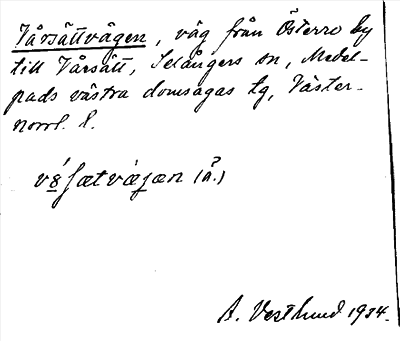 Vårsättvägen, väg från Österro by
till Vårsätt, Selångers sn, Medel-
pads västra domsagas tg, Väster-
norrl. l.
A. Vestlund 1934.